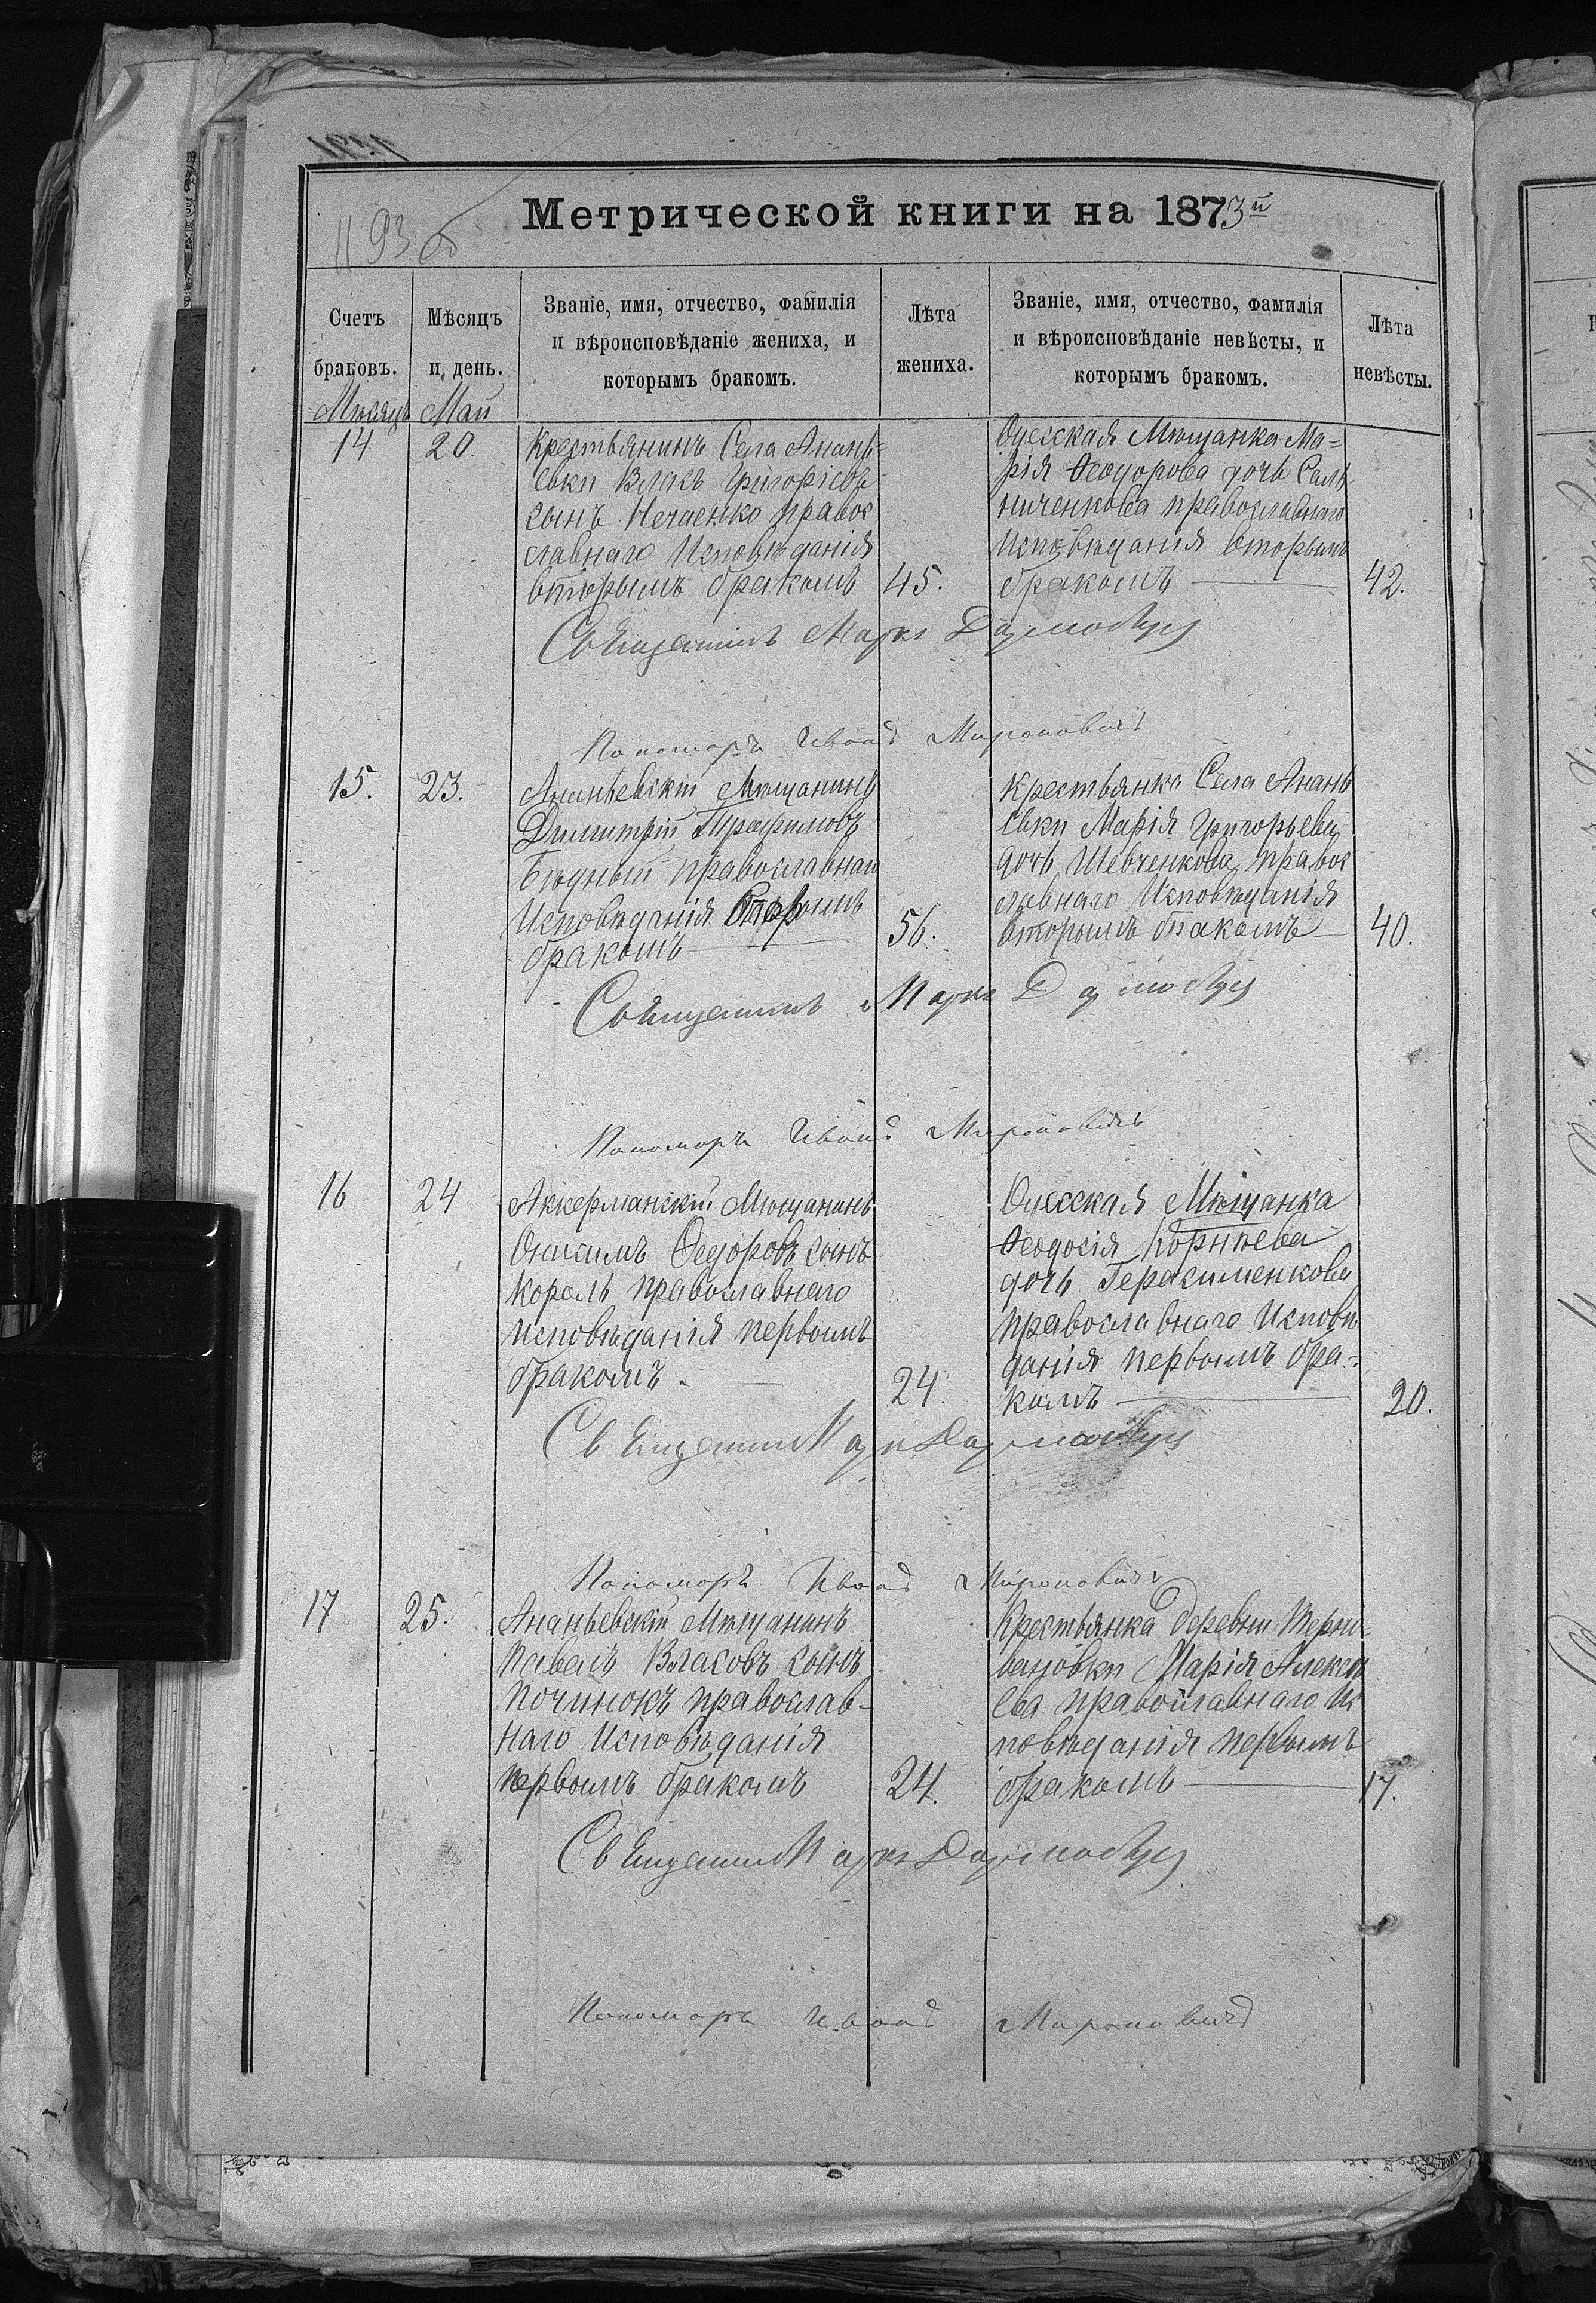 1193 об
Метрической книги на 1873й
Счетъ браковъ.
Мѣсяцъ и день.
Званіе, имя, отчество, фамилія
и вѣроисповѣданіе жениха, и
которымъ бракомъ.
Лѣта жениха.
Званіе, имя, отчество, фамилія
и вѣроисповѣданіе невѣсты, и
которымъ бракомъ.
Лѣта невѣсты.
Мѣсяцъ Май
14
20.
Крестьянинъ Села Анань-
евки Власъ Григоріевъ
сынъ Нечаенко правос
славнаго Исповѣданія
вторымъ бракомъ
45.
Одесская Мѣщанка Ма=
рія Ѳеодорова дочь Саль
ниченкова православнаго
Исповѣданія вторымъ
бракомъ
42.
Священникъ Маркъ
Пономарь Иванъ Мироновичъ
15.
23.
Ананьевскій Мѣщанинъ
Димитрій Трофимовъ
Бѣдный православнаго
Исповѣданія вторымъ
бракомъ
56.
Крестьянка Села Анань
евки Марія Григорьева
дочь Шевченкова правос
славнаго Исповѣданія
вторымъ бракомъ
40.
Священникъ Маркъ
Пономарь Иванъ Мироновичъ
16
24
Аккерманскій Мѣщанинъ
Онисимъ Ѳедоровъ сынъ
Король православнаго
исповѣданія первымъ
бракомъ.
24.
Одесская Мѣщанка
Ѳеодосія Корнѣева
дочь Герасименкова
православнаго Исповѣ
данія первымъ бра-
комъ
20.
Священник Марк
Пономарь Иванъ Мироновичъ
17
25.
Ананьевскій Мѣщанинъ
Павелъ Власовъ сынъ
Починокъ православ-
наго Исповѣданія
первымъ бракомъ
24.
Крестьянка деревни Терно-
вановки Марія Алексѣ
ева православнаго Ис
повѣданія первымъ
бракомъ
17.
Священник Маркъ
Пономарь Иванъ Мироновичъ